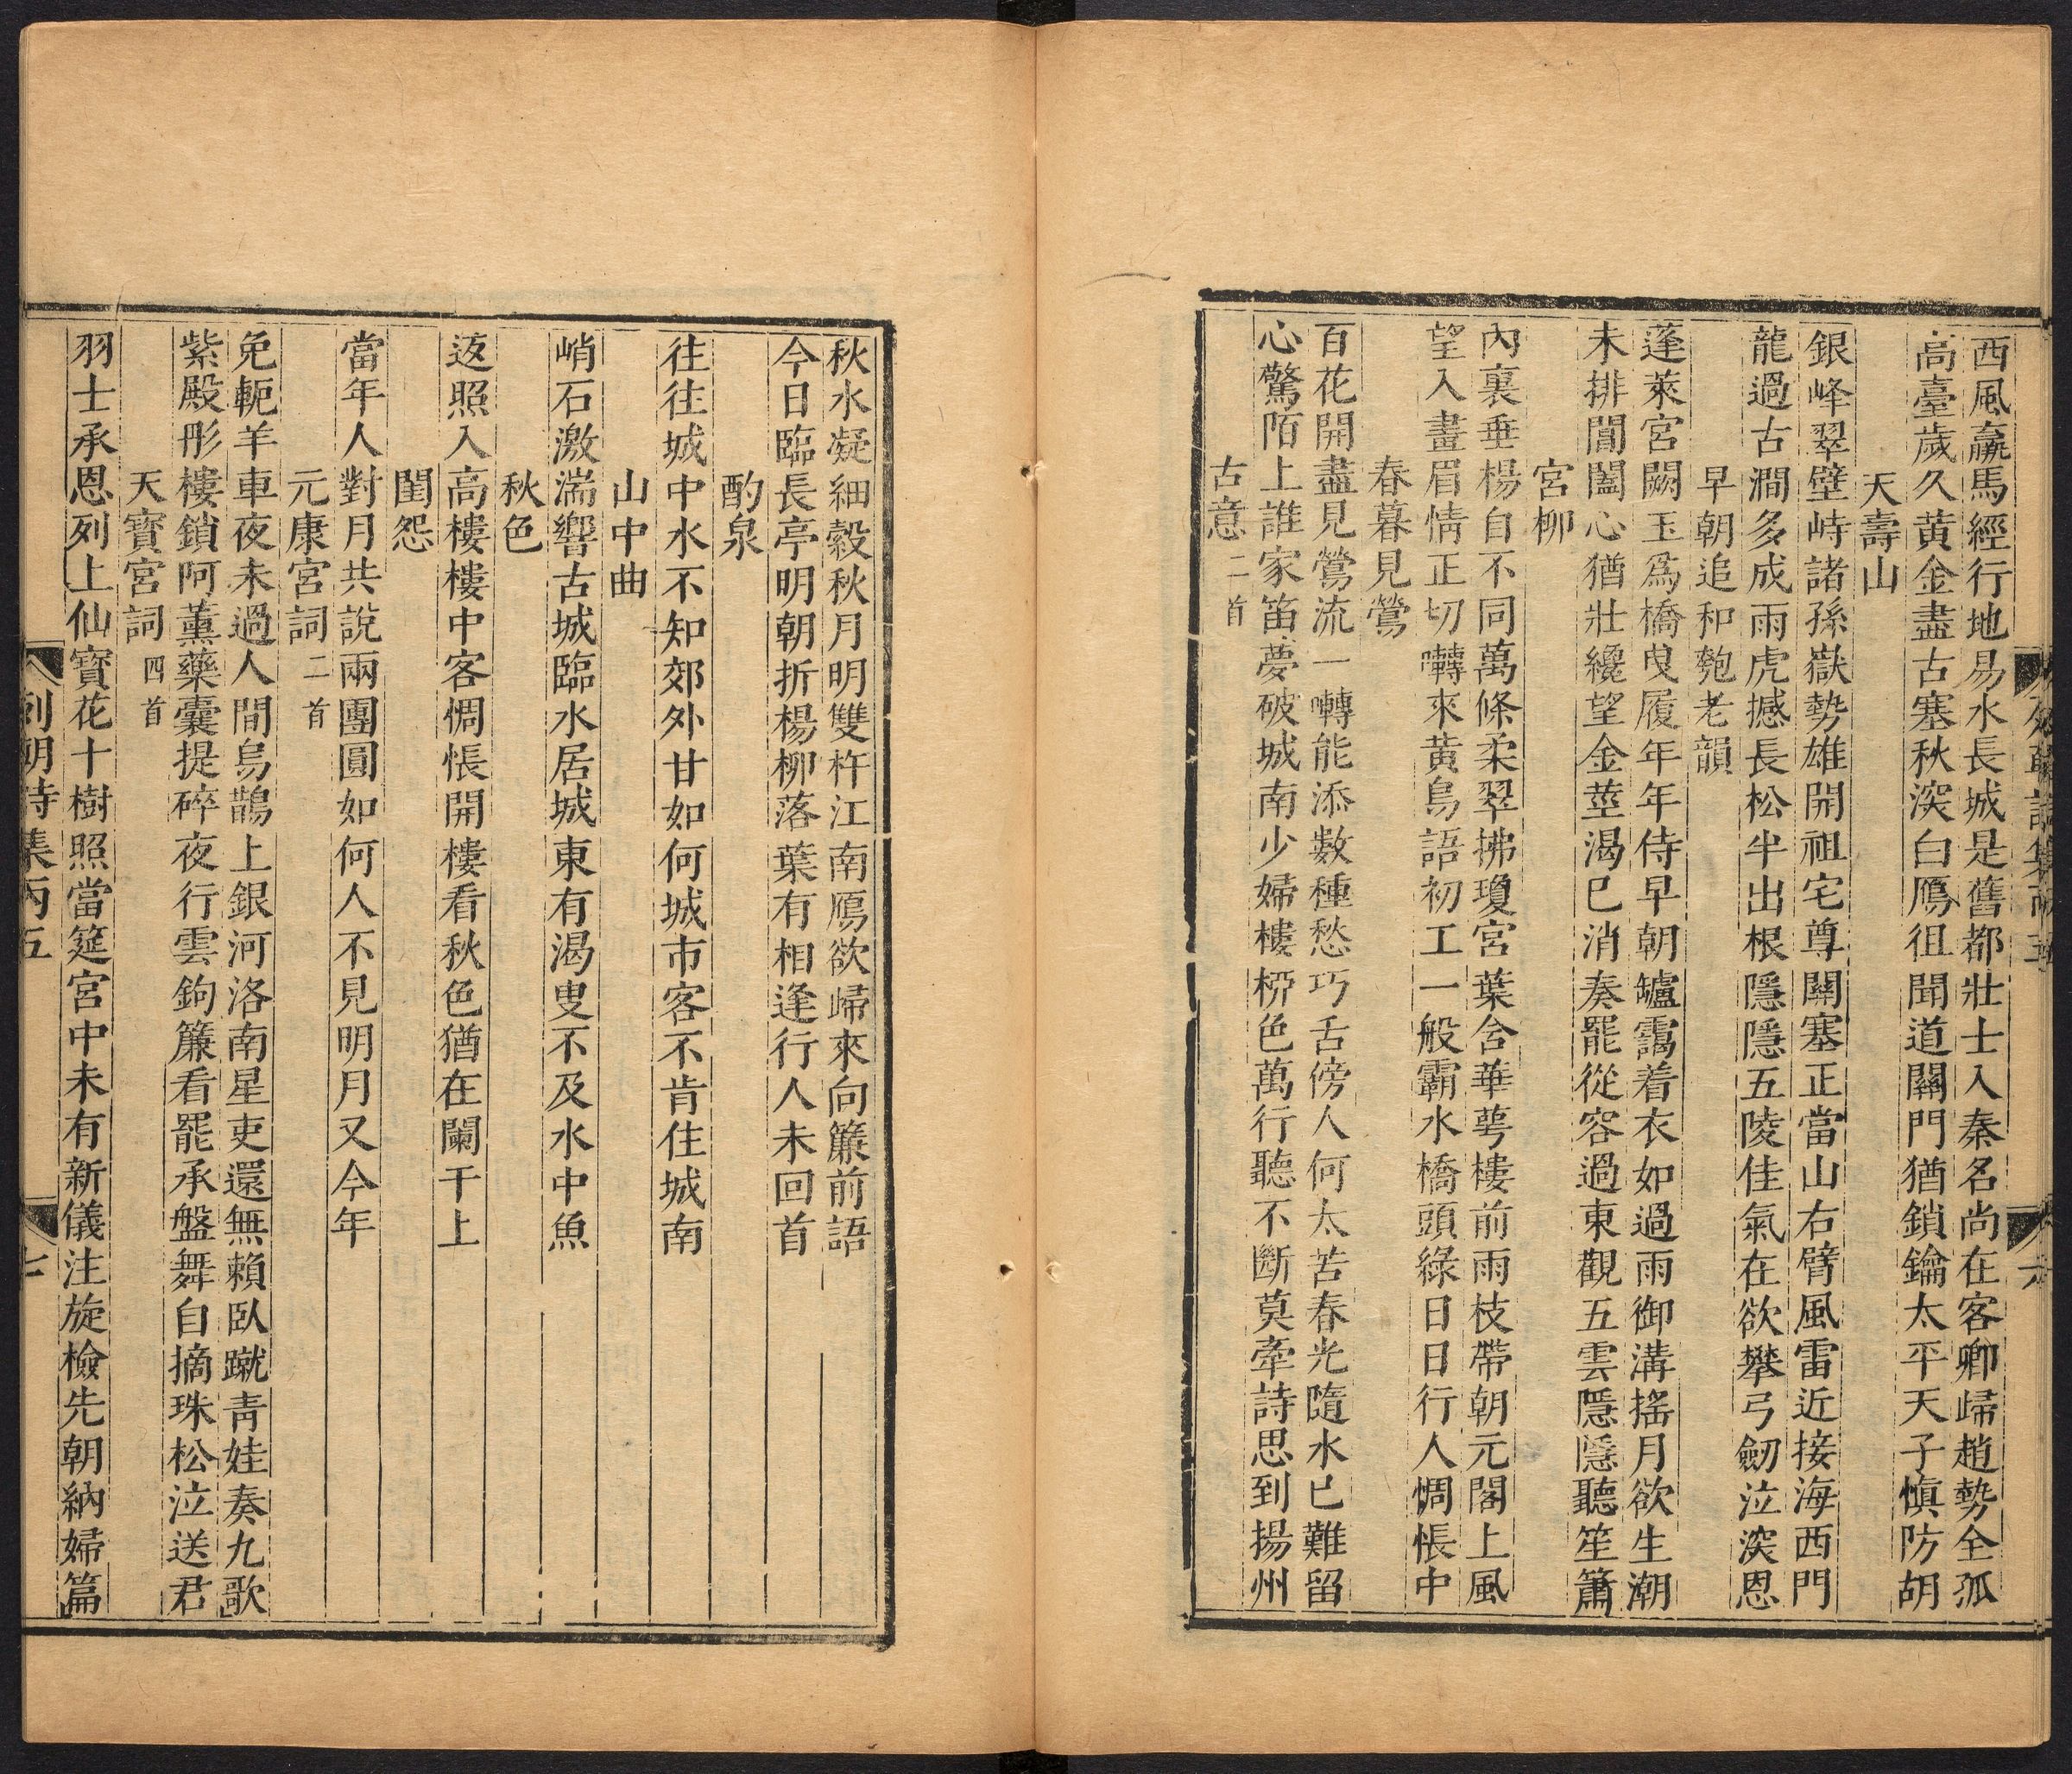 西風羸馬經行地易水長城是舊都壯士入秦名尚在客卿歸趙勢全孤
高臺歲久黃金盡古塞秋深白鴈徂聞道關門猶鎖鑰太平天子慎防胡
天壽山
銀峰翠壁峙諸孫嶽勢雄開祖宅尊關塞正當山右臂風雷近接海西門
龍過古澗多成雨虎撼長松半出根隱隱五陵佳氣在欲攀弓劒泣深恩
早朝追和匏老韻
蓬萊宮闕玉爲橋曳履年年侍早朝罏靄着衣如過雨御溝搖月欲生潮
未排閶闔心猶壯纔望金莖渴已消奏罷從容過東觀五雲隱隱聽笙簫
宮柳
內裏垂楊自不同萬條柔翠拂瓊宮葉含華萼樓前雨枝帶朝元閣上風
望入畫眉情正切囀來黃鳥語初工一般霸水橋頭綠日日行人惆悵中
春暮見鶯
百花開盡見鶯流一囀能添數種愁巧舌傍人何太苦春光隨水已難留
心驚陌上誰家笛夢破城南少婦樓桞色萬行聽不斷莫牽詩思到揚州
古意二首
秋水凝細縠秋月明雙杵江南鴈欲歸來向簾前語
今日臨長亭明朝折楊柳落葉有相逢行人未回首
酌泉
往往城中水不知郊外甘如何城市客不肯住城南
山中曲
峭石激湍響古城臨水居城東有渴叟不及水中魚
秋色
返照入高樓樓中客惆悵開樓看秋色猶在闌干上
閨怨
當年人對月共說兩團圓如何人不見明月又今年
元康宮詞二首
免軛羊車夜未過人間烏鵲上銀河洛南星吏還無賴臥蹴靑娃奏九歌
紫殿彤樓鎖阿薰藥囊提碎夜行雲鉤簾看罷承盤舞自摘珠松泣送君
天寶宮詞四首
羽士承恩列上仙寶花十樹照當筵宮中未有新儀注旋檢先朝納婦篇
列朝詩集丙五
七